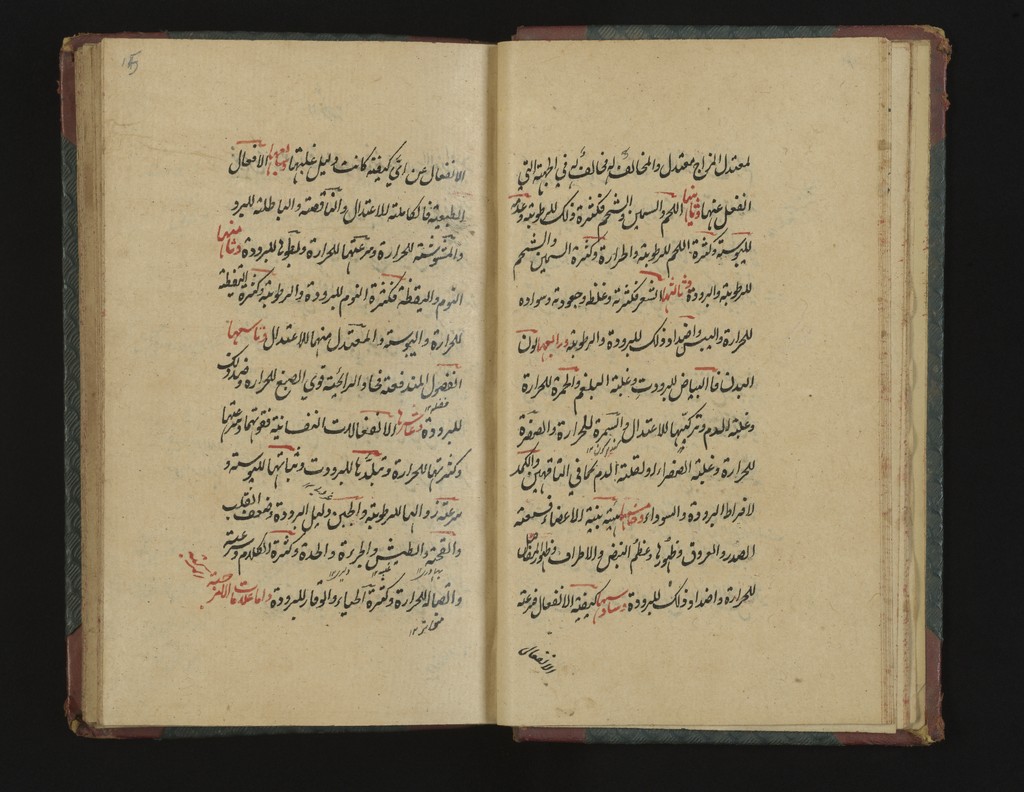 لمعتدل المزاج معتدل والمخالف له مخالف له في الجهة التي
انفعل عنها وثانيها اللحم والسمين والشحم فكثرة ذلك للرطوبة وعدمه
لليبوسة وكثرة اللحم للرطوبة والحرارة وكثرة السمين والشحم
للرطوبة والبرودة وثالثها الشعر فكثرته وغلظه وجعودته وسواده
للحرارة واليبس واضداد ذلك للبرودة والرطوبة ورابعها لون
البدن فالبياض للبرودت وغلبة البلغم والحمرة للحرارة
وغلبة الدم وتركبها للاعتدال والسمرة للحرارة والصفرة
للحرارة وغلبة الصفراء او لقلة الدم كما في الناقهين والكمد
لافراط البرودة والسوداء وخامسها هيئة بنية الاعضاء فسعة
الصدر والعروق وظهورها وعظم النبض والاطراف وظهور المفاصل
للحرارة واضداد ذلك للبرودة وسادسها كيفية الانفعال فسرعة
الانفعال
15
الانفعال من اي كيفية كانت دليل غلبتها وسابعها الافعال
الطبيعية فالكاملة للاعتدال والناقصة والباطلة للبرد
والمشوشة للحرارة وسرعتها للحرارة وبطوها للبرودة وثامنها
النوم واليقظة فكثرة النوم للبرودة والرطوبة وكثرة اليقظة
للحرارة واليبوسة والمعتدل منها للاعتدال وتاسعها
الفضول المندفعة فحاد الرائحة قوي الصبغ للحرارة وضد ذلك
للبرودة وعاشرها الانفعالات النفسانية فقوتها وسرعتها
وكثرتها للحرارة وتبلدها للبرودت وثباتها لليبوسة و
سرعة زوالها للرطوبة والجبن دليل البرودة وضعف القلب
والقحة والطيش والجرءة والحدة وكثرة الكلام وسرعته
واتصاله للحرارة وكثرة الحياء والوقار للبرودة واما علامات الامزجة